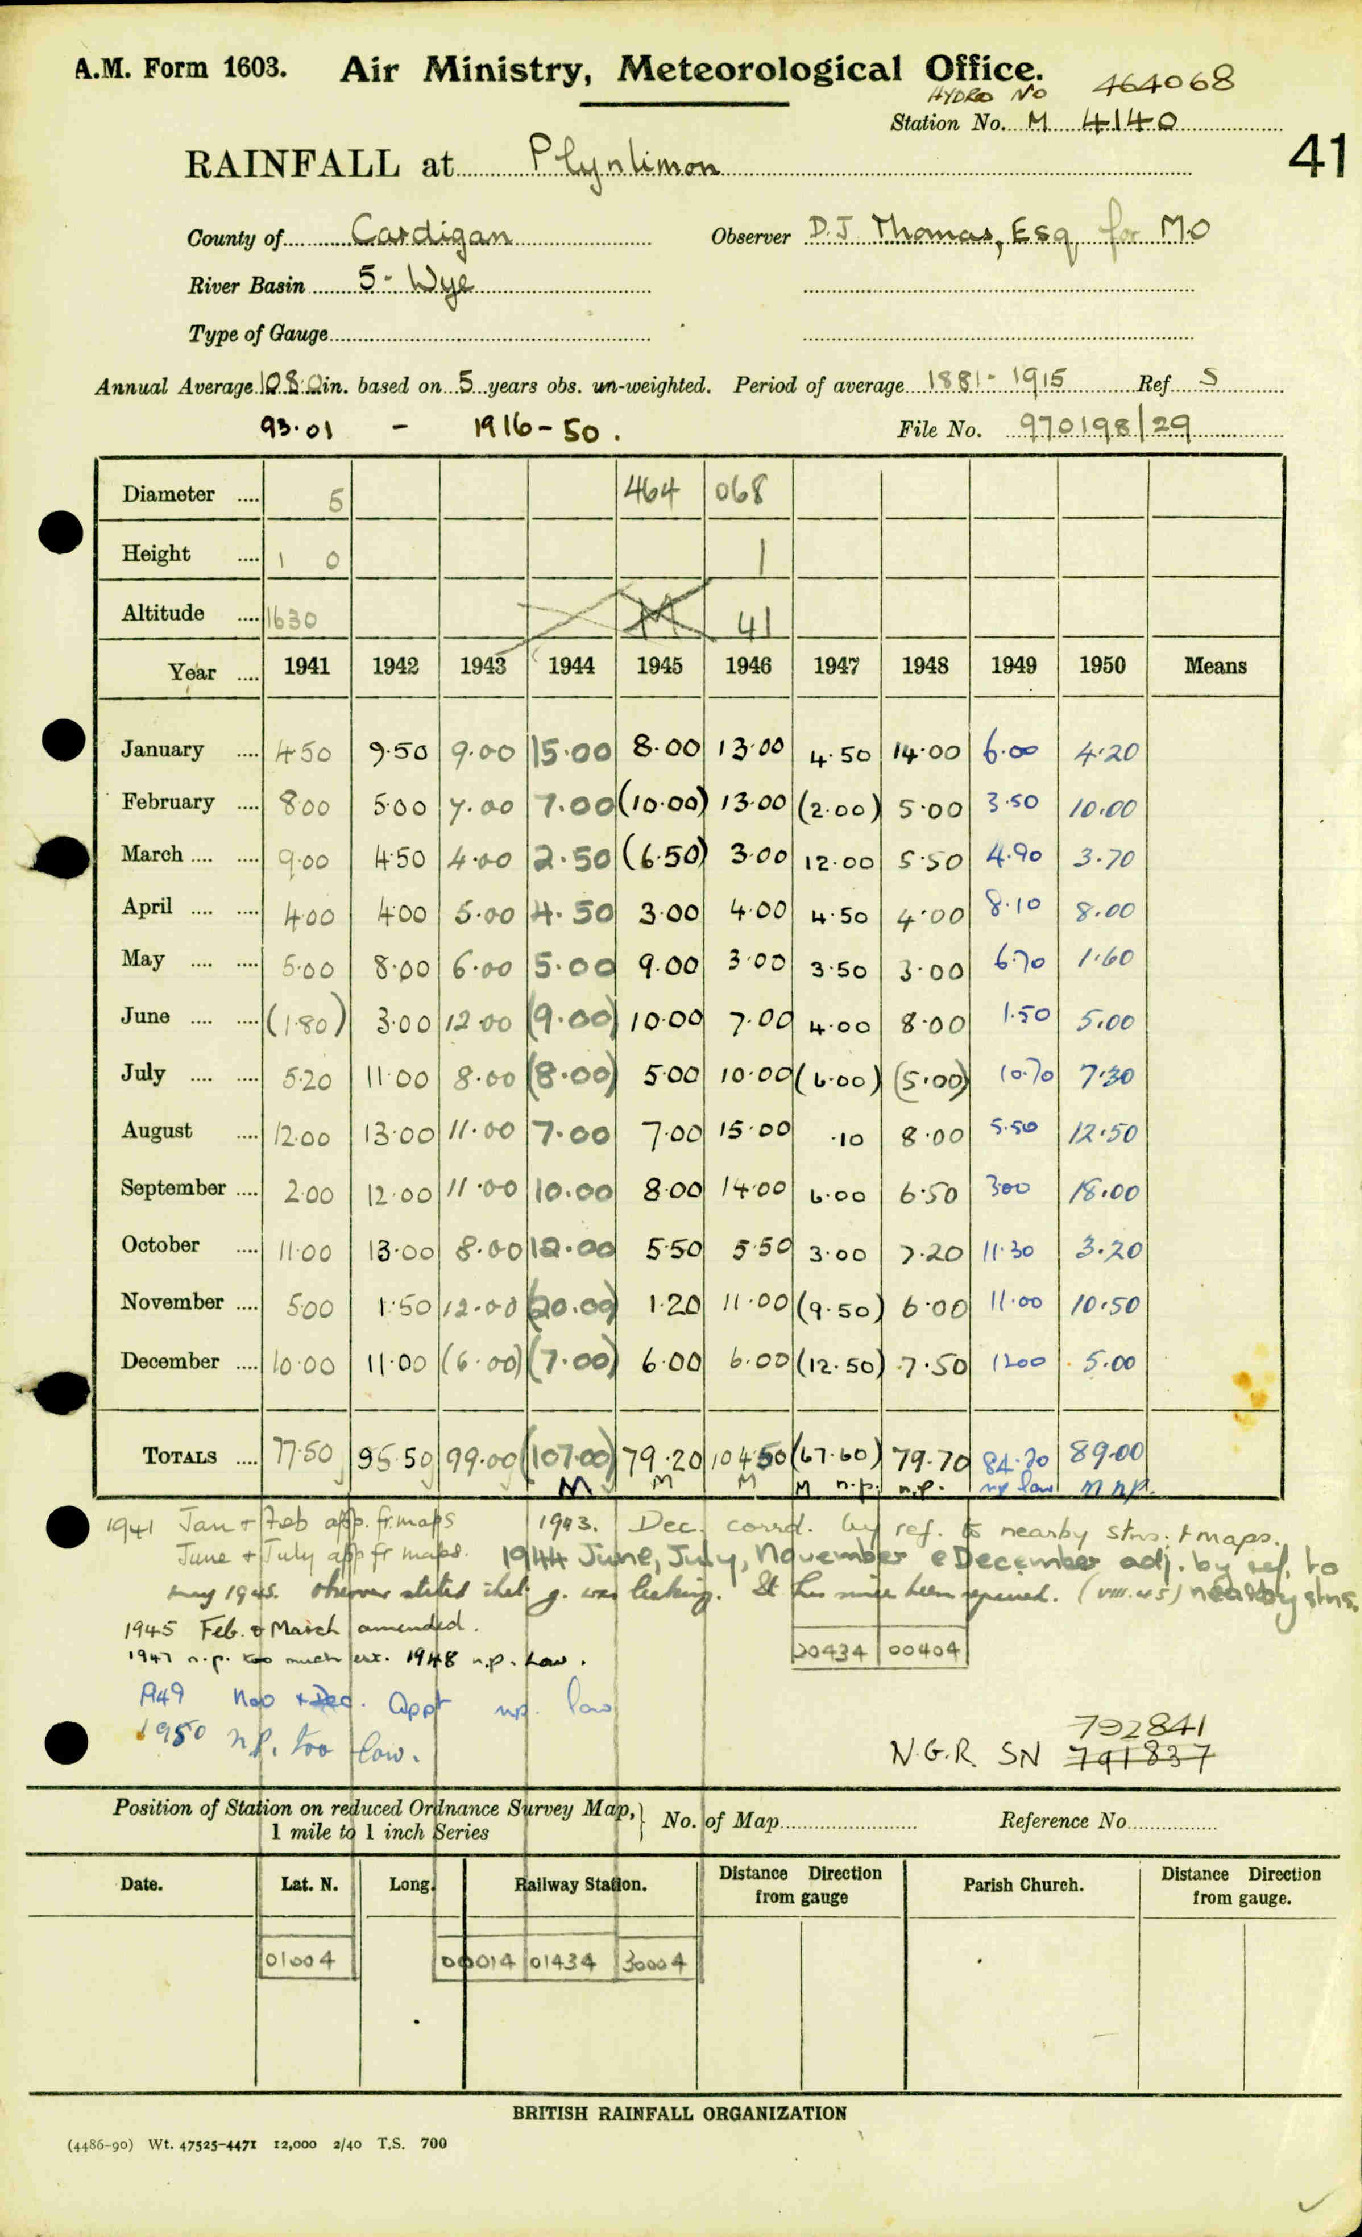 A.M. Form 1603. Air Ministry, Meteorological Office.
HYDRO NO 464068
Station No. M 4140
41
RAINFALL at Plynlimon
County of Cardigan Observer D.J Thomas, Esq for M.O
River Basin 5 - Wye
Type of Gauge
Annual Average 108.0 in. based on 5 years obs. un-weighted. Period of average 1881 - 1915 Ref. S
93.01 - 1916 - 50. File No. 970198/29
Diameter .... 5 464 068
Height .... 1 0 1
Altitude .... 1630 M 41
Year .... 1941 1942 1943 1944 1945 1946 1947 1948 1949 1950 Means
January .... 4.50 9.50 9.00 15.00 8.00 13.00 4.50 14.00 6.00 4.20
February .... 8.00 5.00 7.00 7.00 (10.00) 13.00 (2.00) 5.00 3.50 10.00
March .... .... 9.00 4.50 4.00 2.50 (6.50) 3.00 12.00 5.50 4.90 3.70
April .... .... 4.00 4.00 5.00 4.50 3.00 4.00 4.50 4.00 8.10 8.00
May .... .... 5.00 8.00 6.00 5.00 9.00 3.00 3.50 3.00 6.70 1.60
June .... .... (1.80) 3.00 12.00 (9.00) 10.00 7.00 4.00 8.00 1.50 5.00
July .... .... 5.20 11.00 8.00 (8.00) 5.00 10.00 (6.00) (5.00) 10.70 7.30
August .... 12.00 13.00 11.00 7.00 7.00 15.00 .10 8.00 5.50 12.50
September .... 2.00 12.00 11.00 10.00 8.00 14.00 6.00 6.50 3.00 18.00
October .... 11.00 13.00 8.00 12.00 5.50 5.50 3.00 7.20 11.30 3.20
November .... 5.00 1.50 12.00 (20.00) 1.20 11.00 (9.50) 6.00 11.00 10.50
December .... 10.00 11.00 (6.00) (7.00) 6.00 6.00 (12.50) 7.50 12.00 5.00
TOTALS .... 77.50 95.50 99.00 (107.00) 79.20 104.50 (67.60) 79.70 84.20 89.00
M M M M n.p. n.p. np low m np.
1941 Jan + Feb app. fr. maps 1943. Dec. corrd. by ref. to nearby stns. + maps.
June + July app fr maps. 1944 June, July, November & December adj. by ref. to
nearby stns.
May 1945. Observer stated that g. was leaking. It has since been repaired. (VIII.45)
1945 Feb. & March amended.
1947 n.p. too much ext. 1948 n.p. Low.
20434 00404
1949 Nov + Dec. Appt np. low
1950 n.p. too low.
792841
N.G.R. SN 791837
Position of Station on reduced Ordnance Survey Map, 1 mile to 1 inch Series } No. of Map Reference No
Date. Lat. N. Long. Railway Station. Distance Direction from gauge Parish Church. Distance Direction from gauge.
01004 00014 01434 30004
BRITISH RAINFALL ORGANIZATION
(4486-90) Wt. 47525-4471 12,000 2/40 T.S. 700